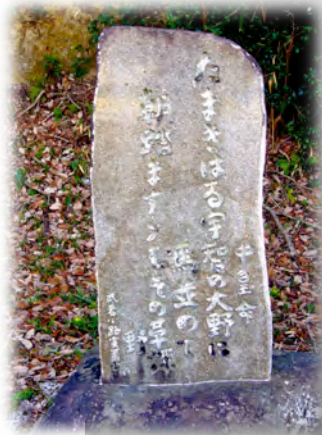 中皇命
たまきはる宇智の大野に
馬並めて
朝踏ますらむその草深